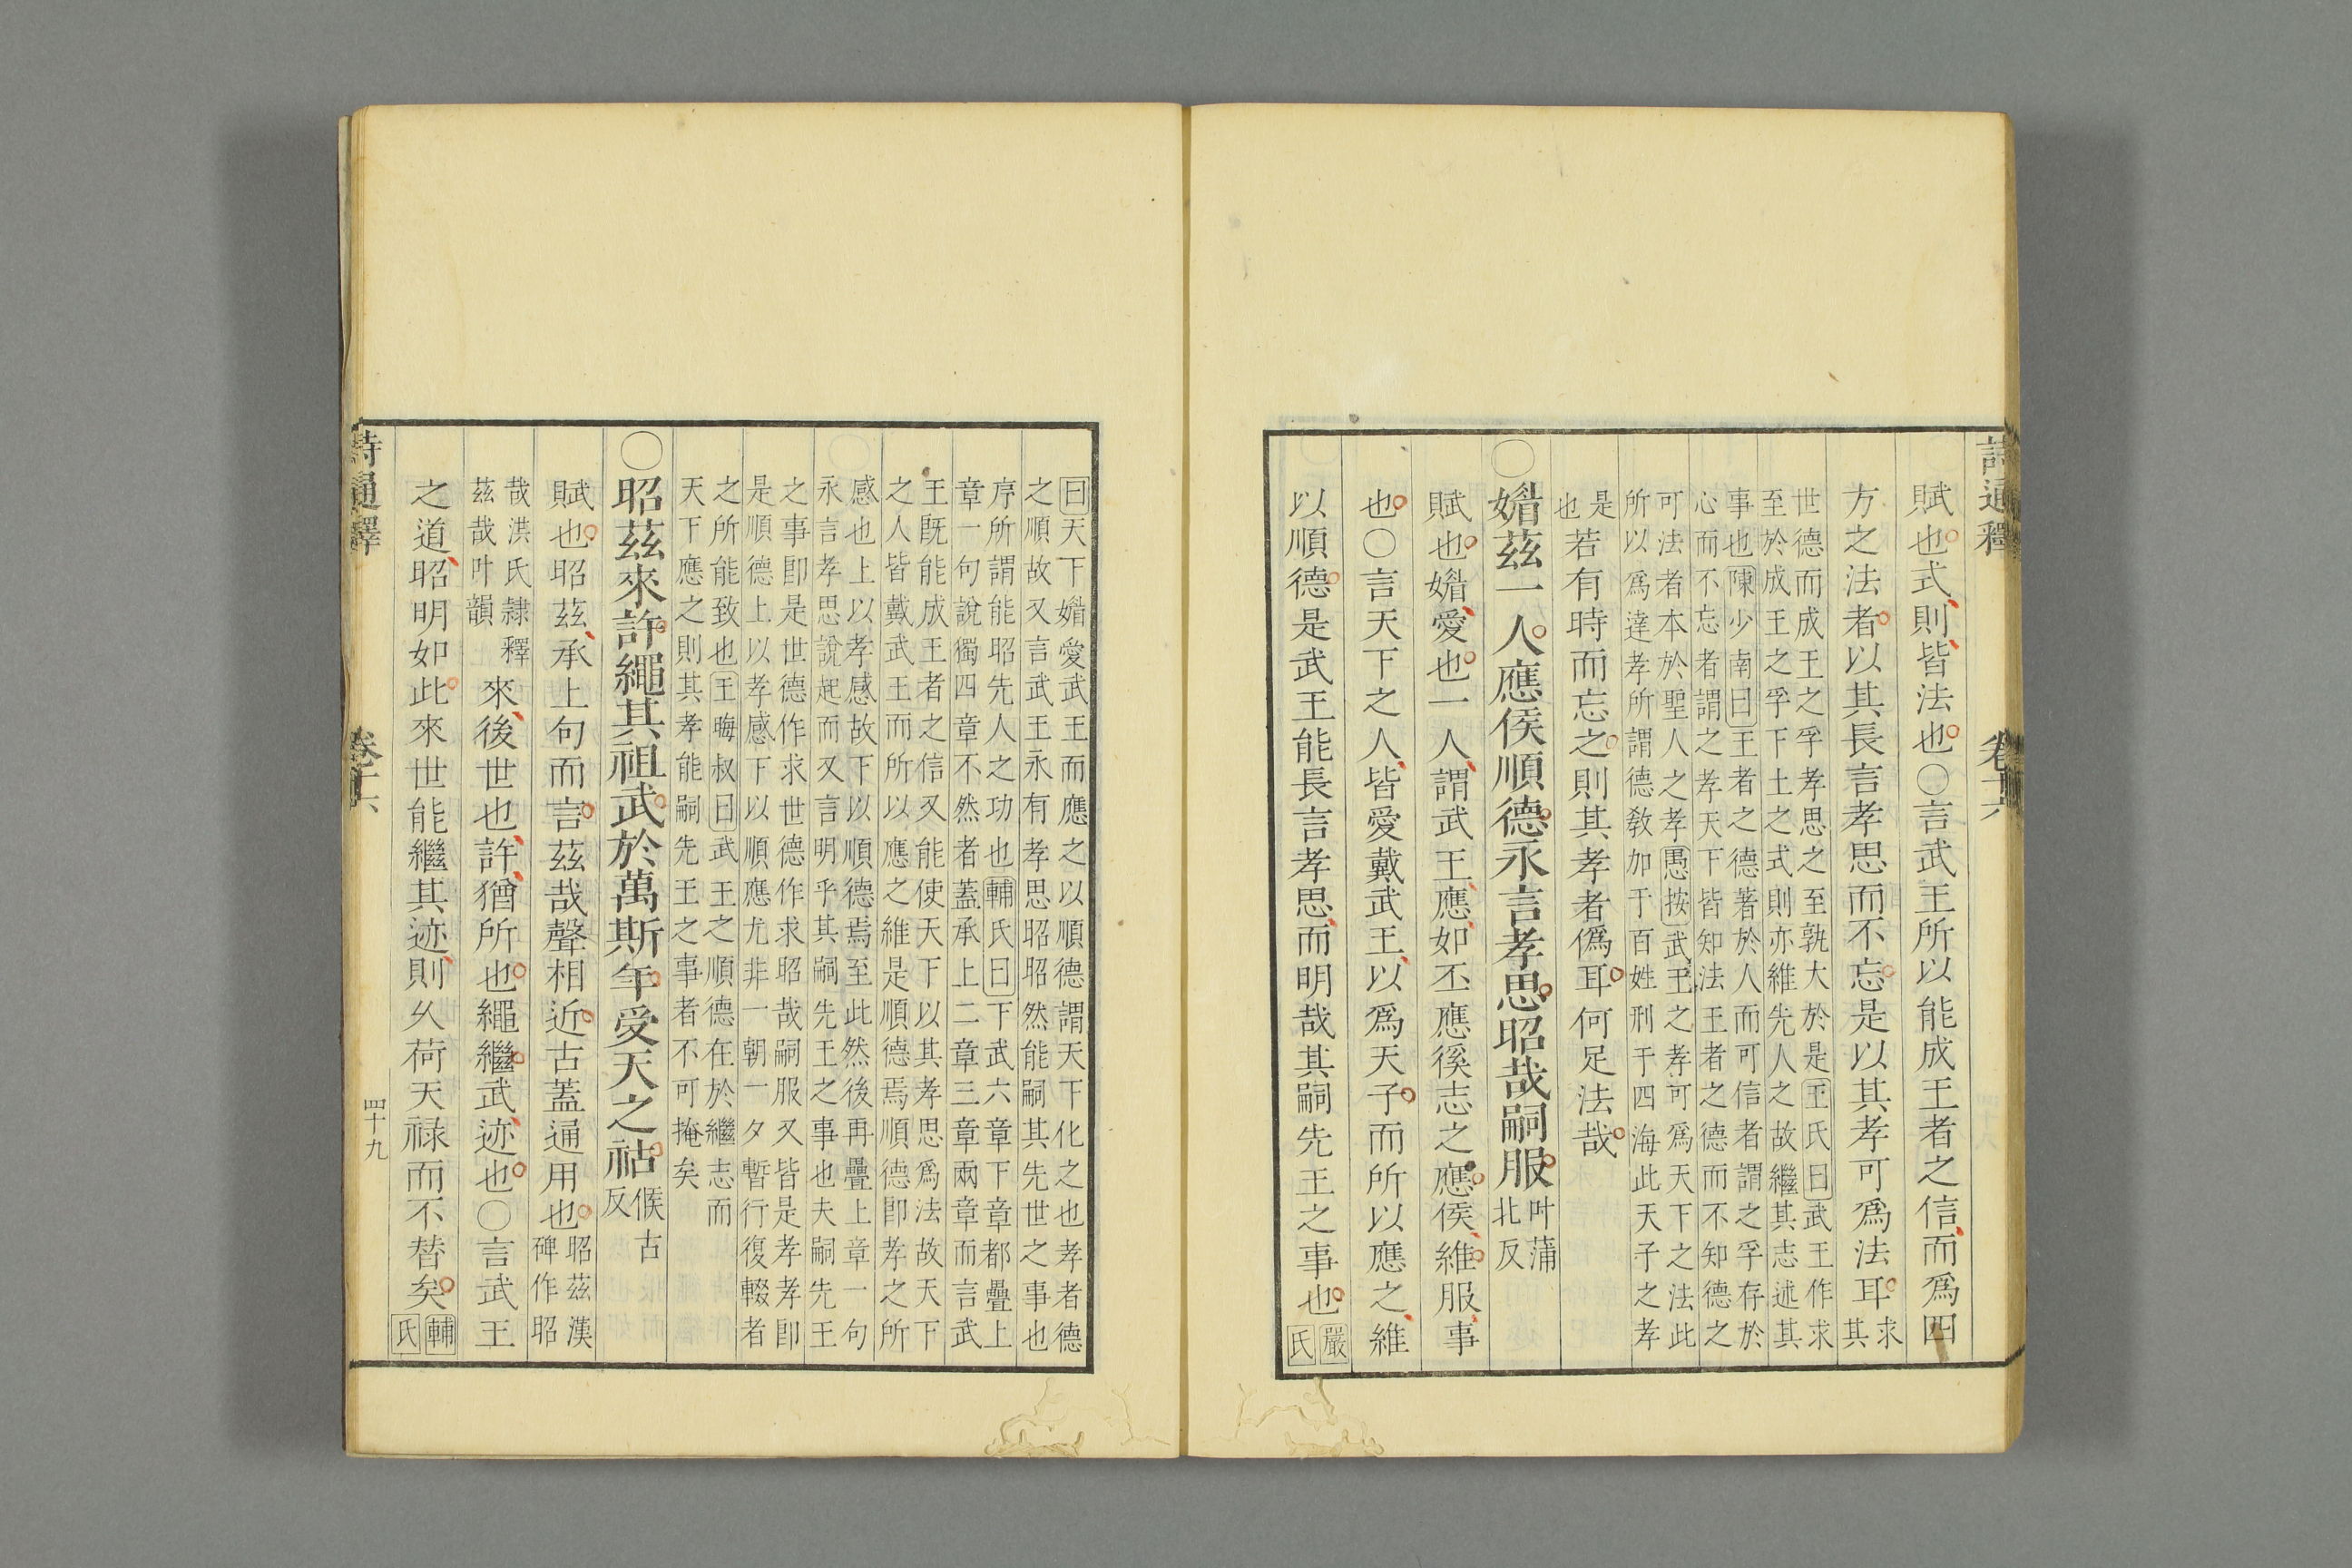 詩通釋 卷十六
賦也式則皆法也○言武王所以能成王者之信而爲四
方之法者以其長言孝思而不忘是以其孝可爲法耳求其
世德而成王之孚孝思之至孰大於是王氏曰武王作求
至於成王之孚下土之式則亦維先人之故繼其志述其
事也陳少南曰王者之德著於人而可信者謂之孚存於
心而不忘者謂之孝天下皆知法王者之德而不知德之
可法者本於聖人之孝愚按武王之孝可爲天下之法此
所以爲達孝所謂德敎加于百姓刑于四海此天子之孝
是也若有時而忘之則其孝者僞耳何足法哉
○媚茲一人應侯順德永言孝思昭哉嗣服叶蒲北反
賦也媚愛也一人謂武王應如丕應徯志之應侯維服事
也○言天下之人皆愛戴武王以爲天子而所以應之維
以順德是武王能長言孝思而明哉其嗣先王之事也嚴氏
曰天下媚愛武王而應之以順德謂天下化之也孝者德
之順故又言武王永有孝思昭昭然能嗣其先世之事也
序所謂能昭先人之功也輔氏曰下武六章下章都疊上
章一句說獨四章不然者蓋承上二章三章兩章而言武
王既能成王者之信又能使天下以其孝思爲法故天下
之人皆戴武王而所以應之維是順德焉順德卽孝之所
感也上以孝感故下以順德焉至此然後再疊上章一句
永言孝思說起而又言明乎其嗣先王之事也夫嗣先王
之事卽是世德作求世德作求昭哉嗣服又皆是孝孝卽
是順德上以孝感下以順應尤非一朝一夕暫行復輟者
之所能致也王晦叔曰武王之順德在於繼志而
天下應之則其孝能嗣先王之事者不可掩矣
○昭茲來許繩其祖武於萬斯年受天之祜候古反
賦也昭茲承上句而言茲哉聲相近古蓋通用也昭茲漢碑作昭
哉洪氏隸釋茲哉叶韻來後世也許猶所也繩繼武迹也○言武王
之道昭明如此來世能繼其迹則久荷天祿而不替矣輔氏
詩通釋 卷十六 四十九